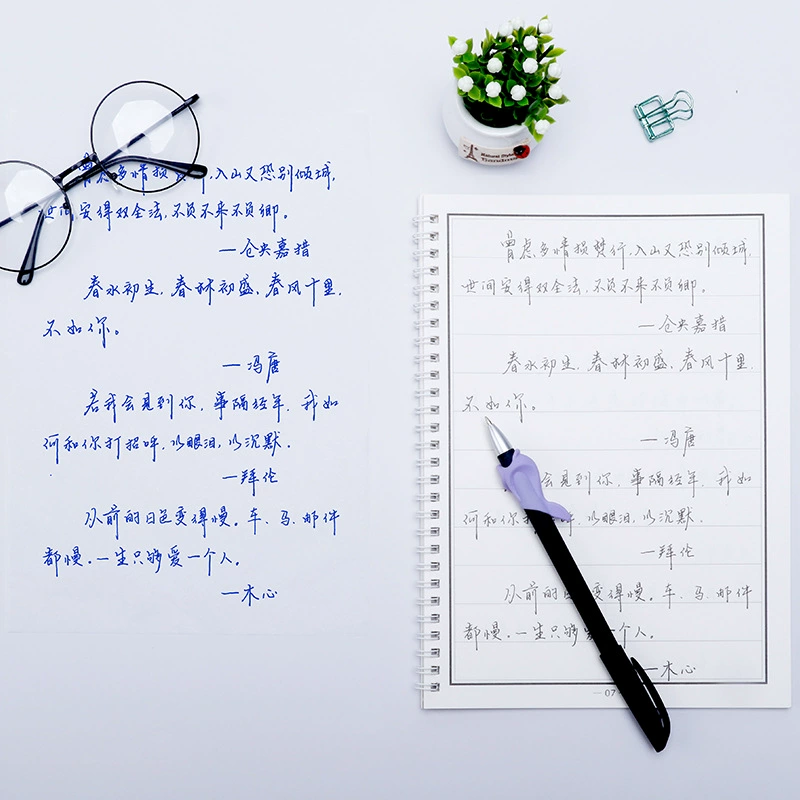 曾虑多情损 行,入山又恐别倾城,
世间安得双全法,不负不来不负卿。
—仓央嘉措
春水初生,春林初盛,春风十里,
不如你。
—冯唐
若我会见到你,事隔经年,我如
何和你打招呼,以眼泪,以沉默.
—拜伦
从前的日色变得慢。车、马、邮件
都慢。一生只够爱一个人。
—木心
Natural Style
曾虑多情损梵行,入山又恐别倾城,
世间安得双全法,不负不来不负卿。
—仓央嘉措
春水初生,春林初盛,春风十里,
不如你。
—冯唐
会见到你,事隔经年,我如
何和你打 呼,以眼泪,以沉默.
—拜伦
从前的日色变得慢。车、马、邮件
都慢。一生只够爱一个人。
—木心
— 07